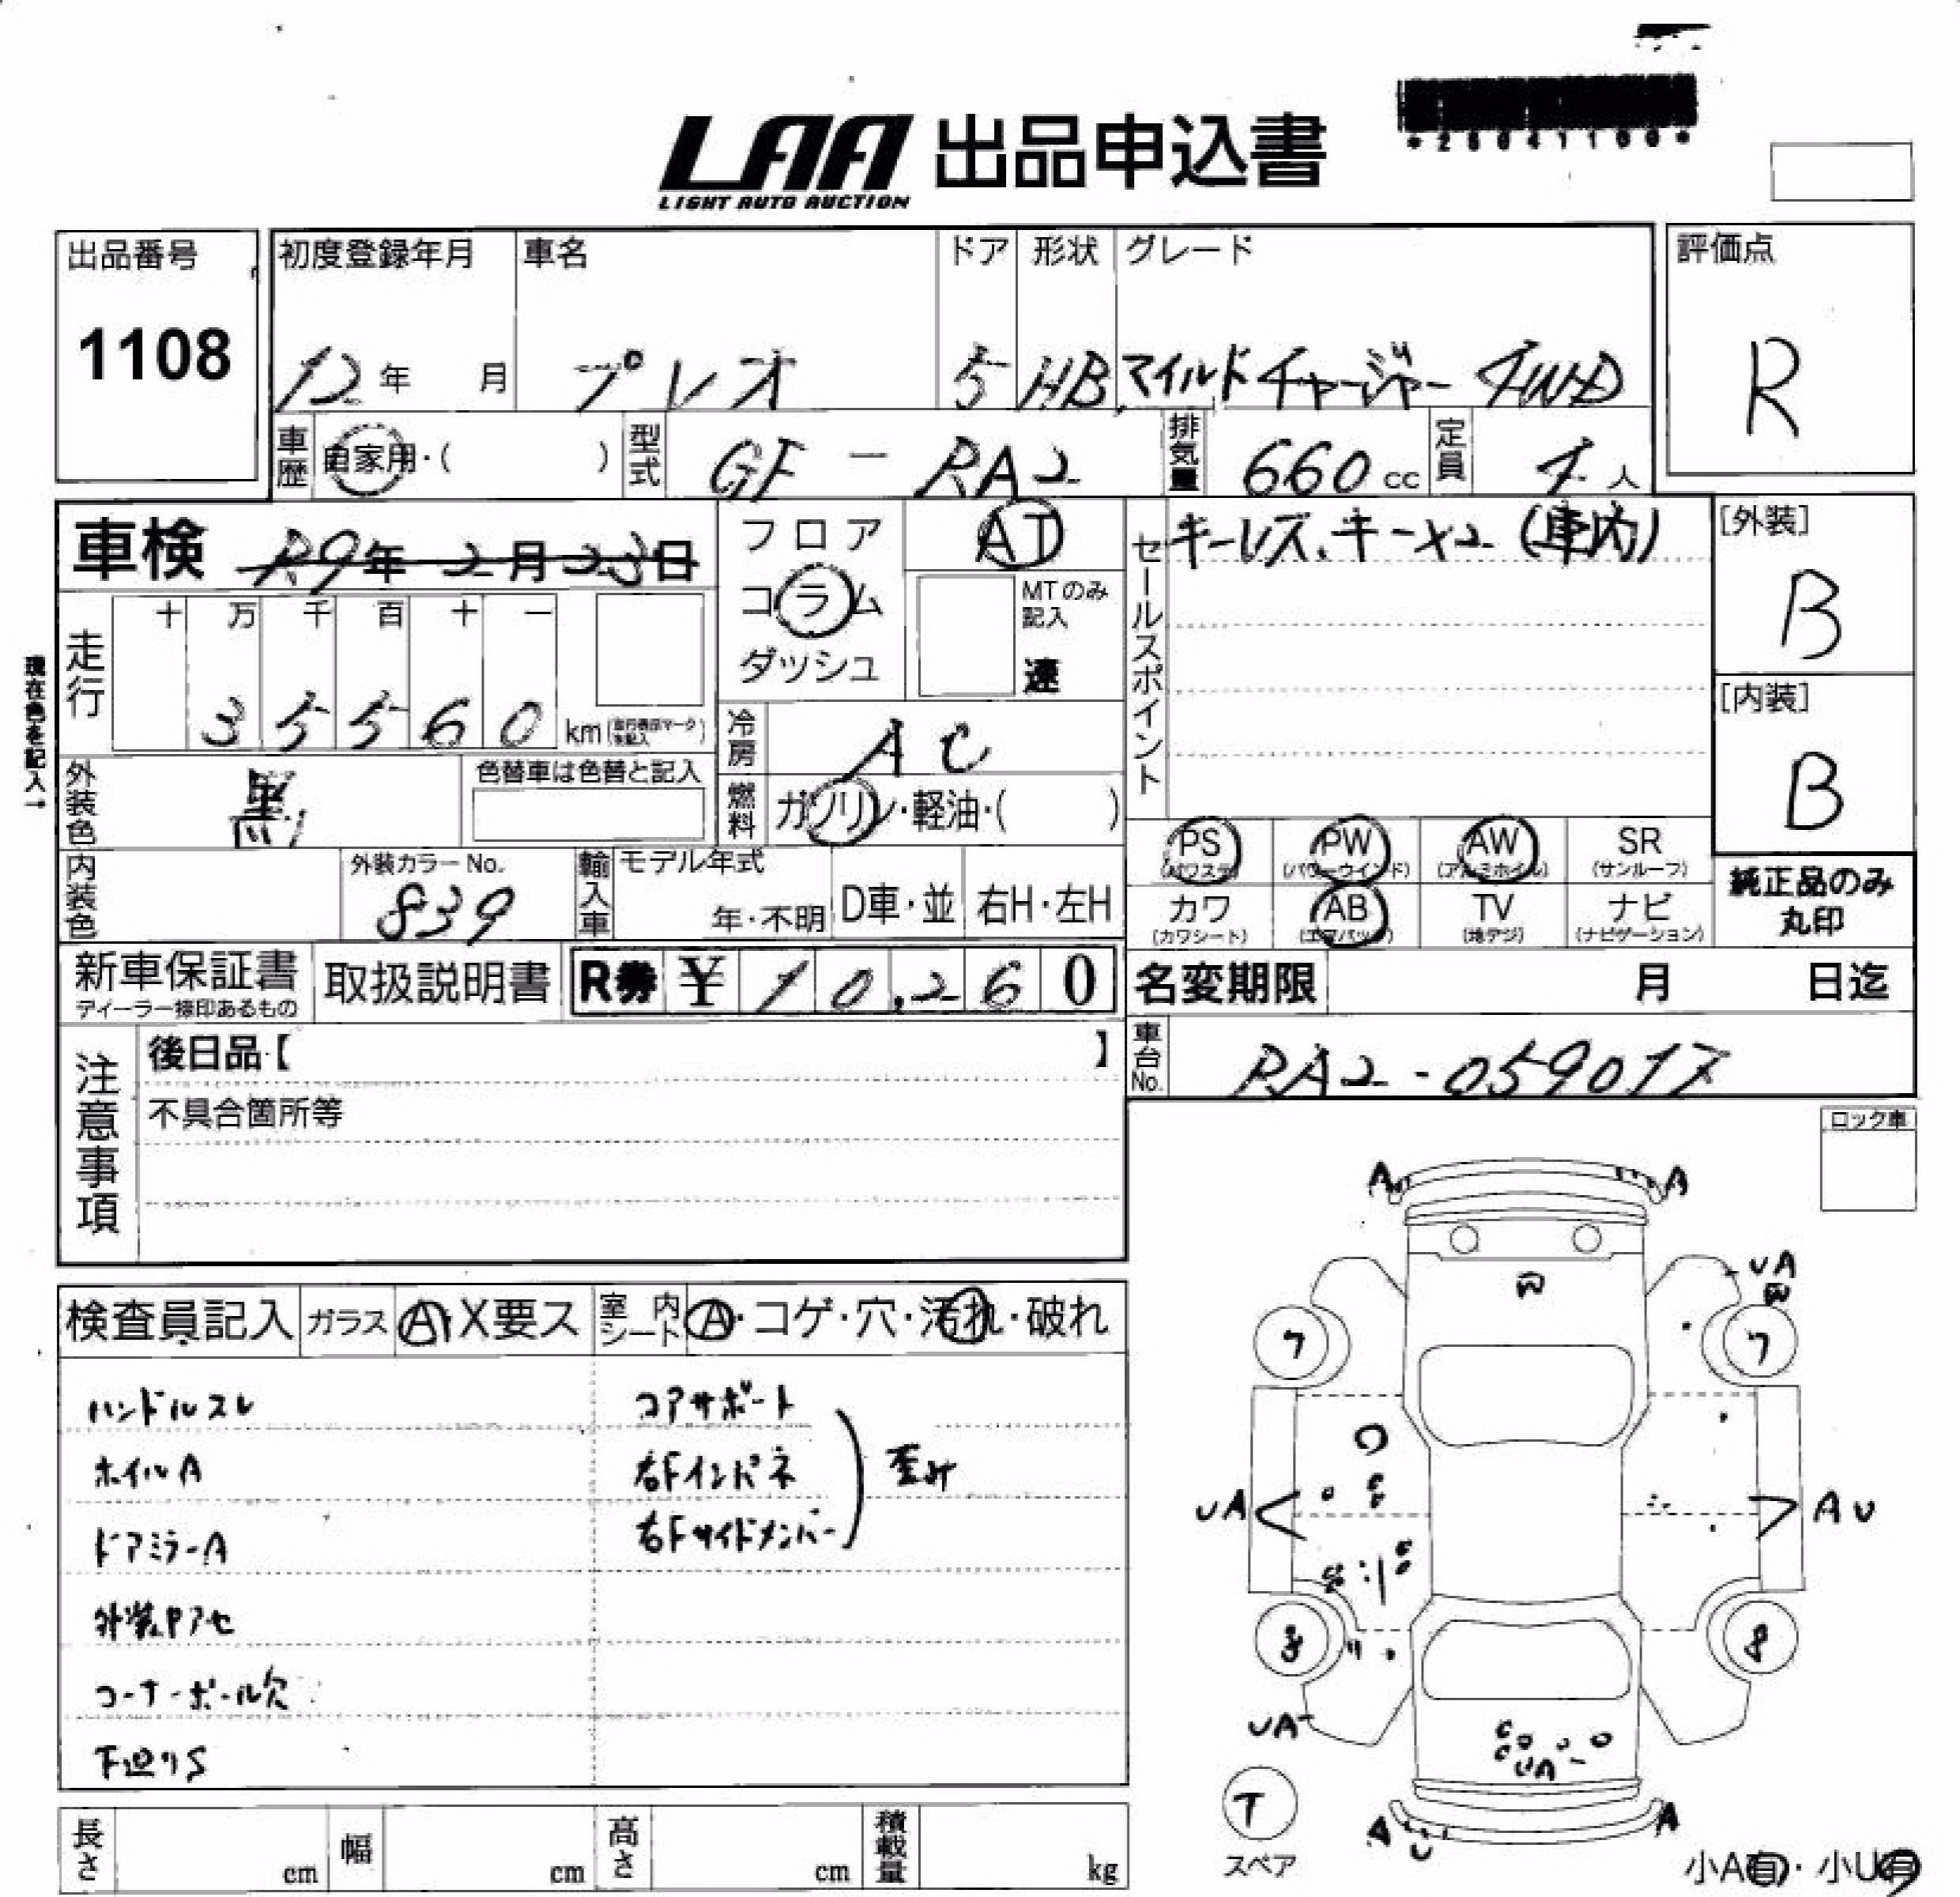 LAA 出品申込書
LIGHT AUTO AUCTION
出品番号 1108
初度登録年月 12年 月
車名 プレオ
ドア 5
形状 HB
グレード マイルドチャージャー 4WD
評価点 R
車歴 自家用・( )
型式 GF-RA2
排気量 660cc
定員 4人
車検 R9年2月23日
フロア
コラム
ダッシュ
AT
MTのみ記入
速
セールスポイント キーレス、キー×2 (車内)
[外装] B
[内装] B
現在色を記入→
走行 十 万 千 百 十 一
3 5 5 6 0 km
冷房 AC
燃料 ガソリン・軽油・( )
外装色 黒
色替車は色替と記入
内装色
外装カラーNo. 839
輸入車 モデル年式 年・不明 D車・並 右H・左H
PS (パワステ) PW (パワーウインド) AW (アルミホイル) SR (サンルーフ)
カワ (カワシート) AB (エアバック) TV (地デジ) ナビ (ナビゲーション)
純正品のみ
丸印
新車保証書
ディーラー捺印あるもの
取扱説明書
R券 ¥ 10,260
名変期限 月 日迄
車台No. RA2-059017
注意事項
後日品【 】
不具合箇所等
ロック車
検査員記入 ガラス A・X要ス 室内シート A・コゲ・穴・汚れ・破れ
ハンドルスレ
ホイルA
ドアミラーA
外装中アセ
コーナーポール穴
下廻りS
コアサポート
右Fインパネ
右Fサイドメンバー
歪み
A A
W
UA
W
7 7
UA
AU
8 8
UA
UA
T
スペア
A U A
小A有・小U有
長さ cm 幅 cm 高さ cm 積載量 kg